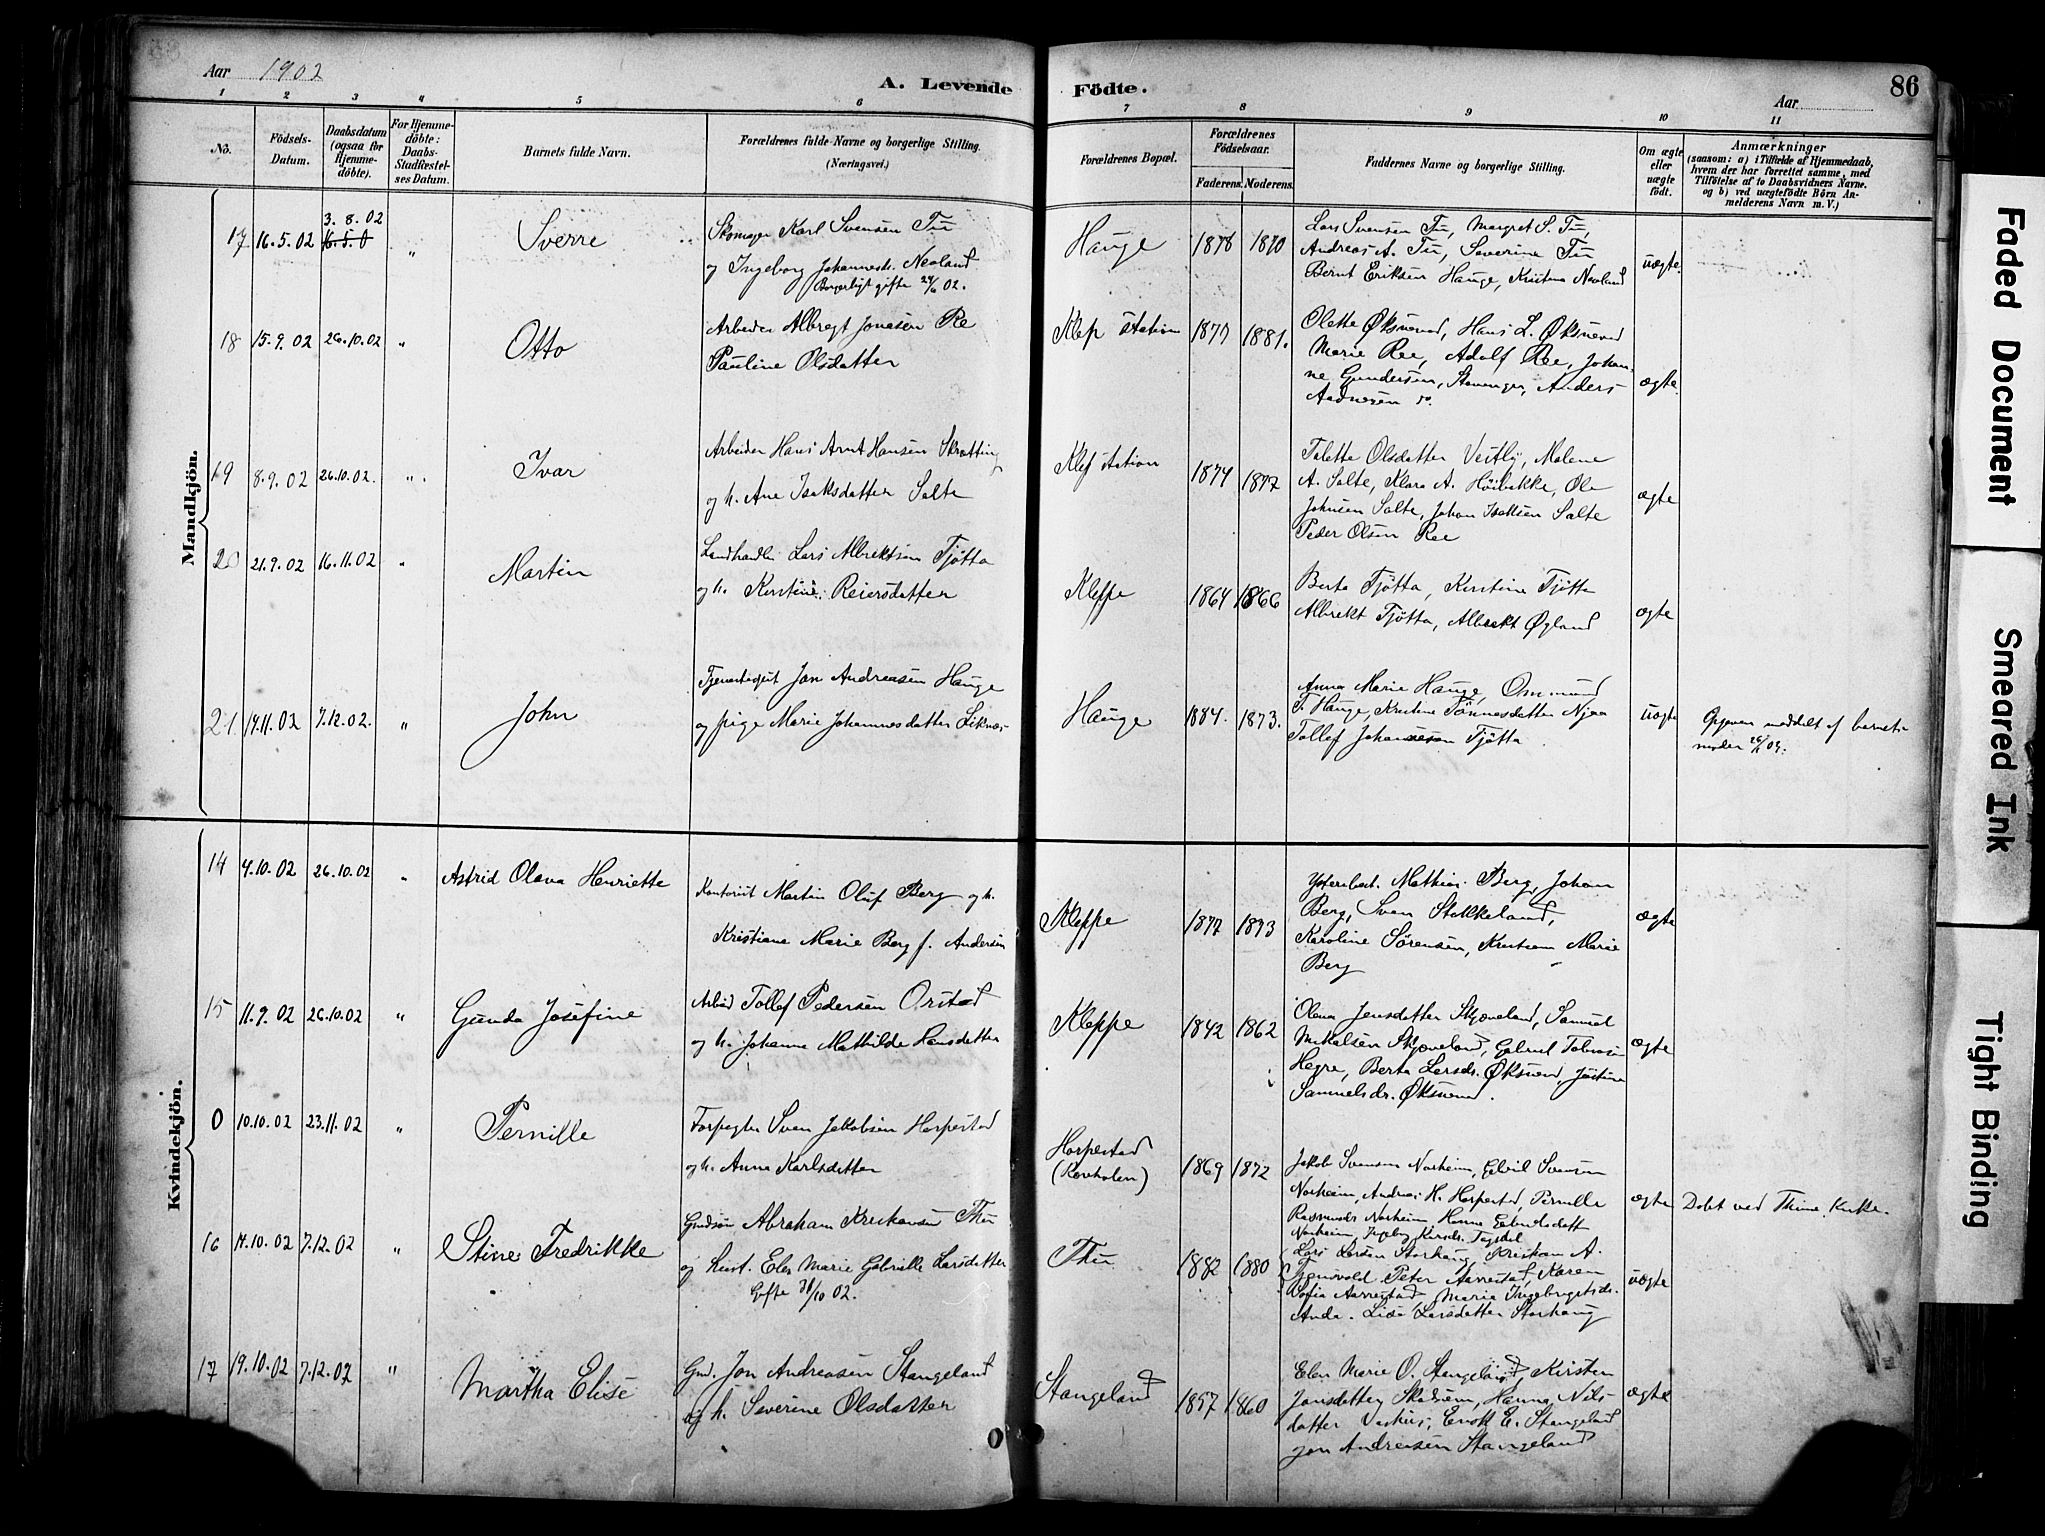 Aar 1902
A. Levende Födte.
Aar
86
1 2 3 4 5 6 7 8 9 10 11
No.
Födsels-Datum.
Daabsdatum (ogsaa for Hjemme-döbte).
For Hjemme-döbte: Daabs-Stadfæstel-ses Datum.
Barnets fulde Navn.
Forældrenes fulde Navne og borgerlige Stilling. (Næringsvei.)
Forældrenes Bopæl.
Forældrenes Födselsaar.
Faderens. Moderens.
Faddernes Navne og borgerlige Stilling.
Om ægte eller uægte födt.
Anmærkninger
(saasom: a) i Tilfælde af Hjemmedaab,
hvem der har forrettet samme, med
Tilföielse af to Daabsvidners Navne.
og b) ved uægtefödte Börn An-
melderens Navn m. V.)
Mandkjön.
17 16.5.02 3.8.02 16.5.0 " Sverre
Skomager Karl Svensen Tu
og Ingeborg Johannesdr. Neoland
Borgerligt gifte 24/6 02.
Hauge 1878 1870
Lars Svensen Tu, Margret S. Tu,
Andreas A. Tu, Severine Tu
Bernt Eriksen Hauge, Kristine Neoland
uægte.
18 15.9.02 26.10.02 " Otto
Arbeider Albregt Jonasen Re
Pauline Olsdatter
Klep station 1877 1881.
Olette Øksnevad, Hans L. Øksnevad
Marie Ree, Adolf Ree, Johan-
ne Gundersen, Stavanger, Anders
Aadnesen do.
ægte.
19 8.9.02 26.10.02. " Ivar
Arbeider Hans Arnt Hansen Skratting
og h. Ane Isaksdatter Salte
Klep station 1874 1877
Talette Olsdatter Vestly, Malene
A. Salte, Klara A. Höibakke, Ole
Johnsen Salte, Johan Isaksen Salte
Peder Olsen Ree
ægte
20 21.9.02 16.11.02 " Martin
Landhandler Lars Albrektsen Tjøtta
og h. Kirstine Reiersdatter
Kleppe 1864 1866
Berta Tjøtta, Kirstine Tjøtta
Albrekt Tjøtta, Albrekt Øgland
ægte
21 17.11.02 7.12.02. " John
Tjenestegut Jon Andreasen Hauge
og pige Marie Johannesdatter Liknes
Hauge 1884. 1873.
Anna Marie Hauge, Ommund
T. Hauge, Kristine Tönnesdatter Njaa
Tollef Johannesen Tjøtta
uægte
Opgaven meddelt af barnets
moder 26/1 03.
Kvindekjön.
14 4.10.02 26.10.02 " Astrid Olava Henriette
Kontorist Martin Oluf Berg og h.
Kristiane Marie Berg f. Andersen
Kleppe 1877 1873
Mathias Berg, Johan
Berg, Sven Stokkeland,
Karoline Sörensen, Kristiane Marie
Berg
ægte
15 11.9.02 26.10.02 " Gunda Josefine
Arbeid. Tollef Pedersen Orstad
og h. Johanne Mathilde Hansdatter
Kleppe 1842 1862
Olava Jensdatter Skjæveland, Samuel
Mikalsen Skjæveland, Gabriel Tobiasen
Hegre, Berta Larsdr. Øksnevad, Justine
Samuelsdr. Øksnevad.
ægte
0 10.10.02 23.11.02 " Pernille
Forpagter Sven Jakobsen Horpestad
og h. Anna Karlsdatter
Horpestad
1869 1872
Jakob Svensen Norheim, Eelvil Svensen
Norheim, Andreas H. Horpestad, Pernille
Rasmusdr. Norheim, Hanne Gabrielsdatt.
Norheim, Ingeborg
ægte
Døbt ved Thime Kirke.
16 14.10.02 7.12.02 " Stine Fredrikke
Gmdsøn Abraham Kristiansen Thu
og hust. Elen Marie Gabrielle Larsdatter
Gifte 31/10 02.
Thu 1882 1880
Lars Larsen Storhaug, Kristian A.
Peter Aarrestad, Karen
Sofia Aarrestad, Maria Ingebregtsdr.
Anda. Lisa Larsdatter Storhaug
uægte
17 19.10.02 7.12.02 " Martha Elise
Gmd. Jon Andreasen Stangeland
og h. Severine Olsdatter
Stangeland 1857 1860
Elen Marie O. Stangeland, Kirsten
Jonsdatter Skadsem, Hanna Nils-
datter Vashus, Enok E. Stangeland
Jon Andreasen Stangeland
ægte
Faded Document
Smeared Ink
Tight Binding